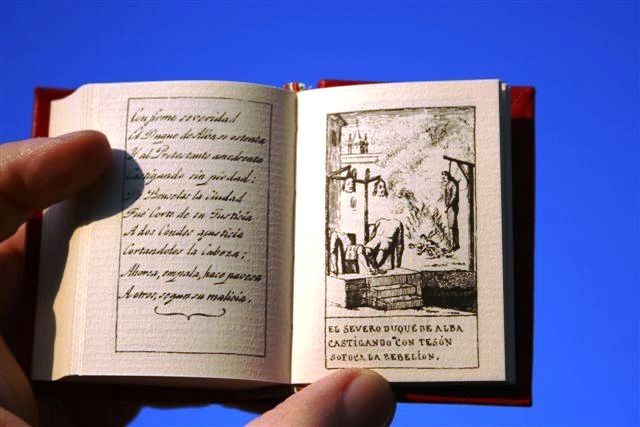 Con firme severidad
El Duque de Alba se ostenta
Y al Protestante amedrenta
Castigando sin piedad:
De Bruselas la Ciudad
Fue Corte de su Justicia
A dos Condes ajusticia
Cortandoles la Cabeza;
Ahorca, empala, hace pavesa
A otros, segun su malicia.
EL SEVERO DUQUE DE ALBA
CASTIGANDO CON TESÓN
SOFOCA LA REBELÍON.